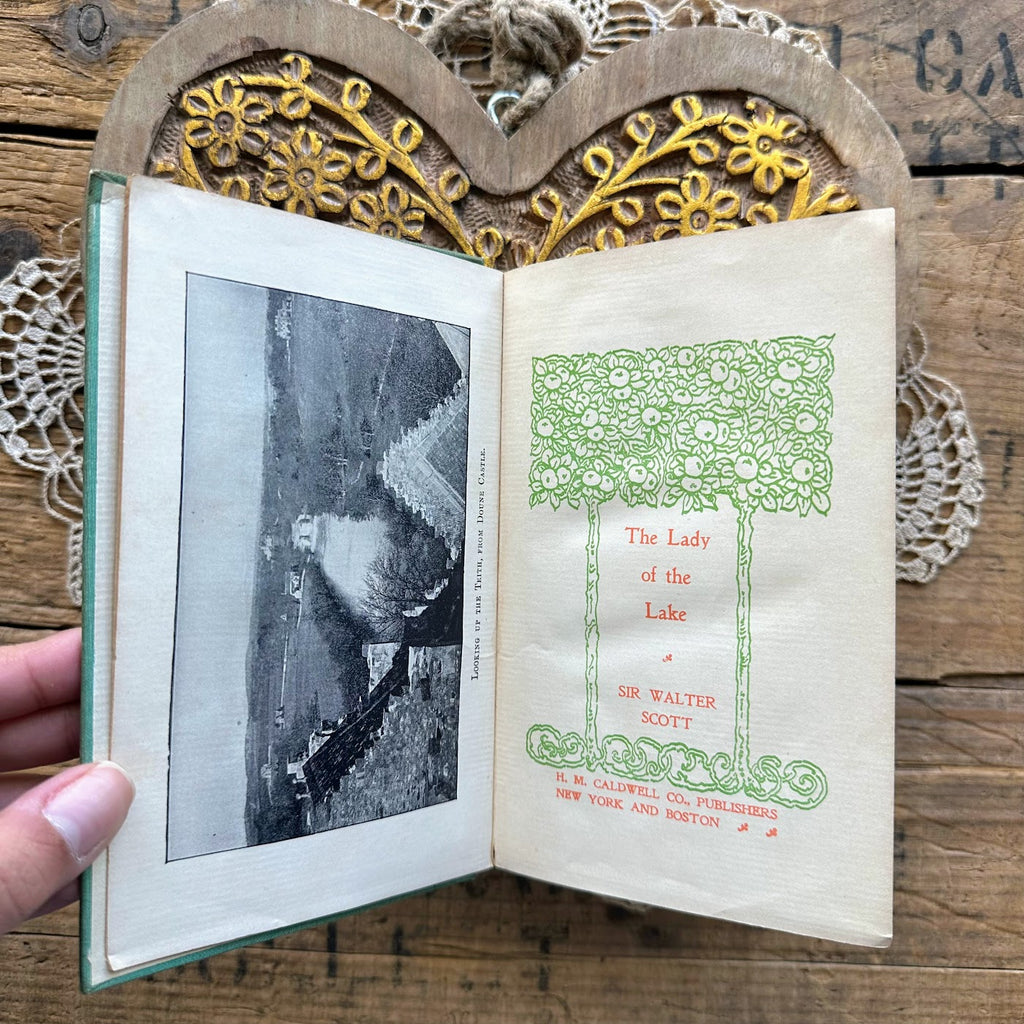 LOOKING UP THE TEITH, FROM DOUNE CASTLE.
The Lady
of the
Lake
SIR WALTER
SCOTT
H. M. CALDWELL CO., PUBLISHERS
NEW YORK AND BOSTON